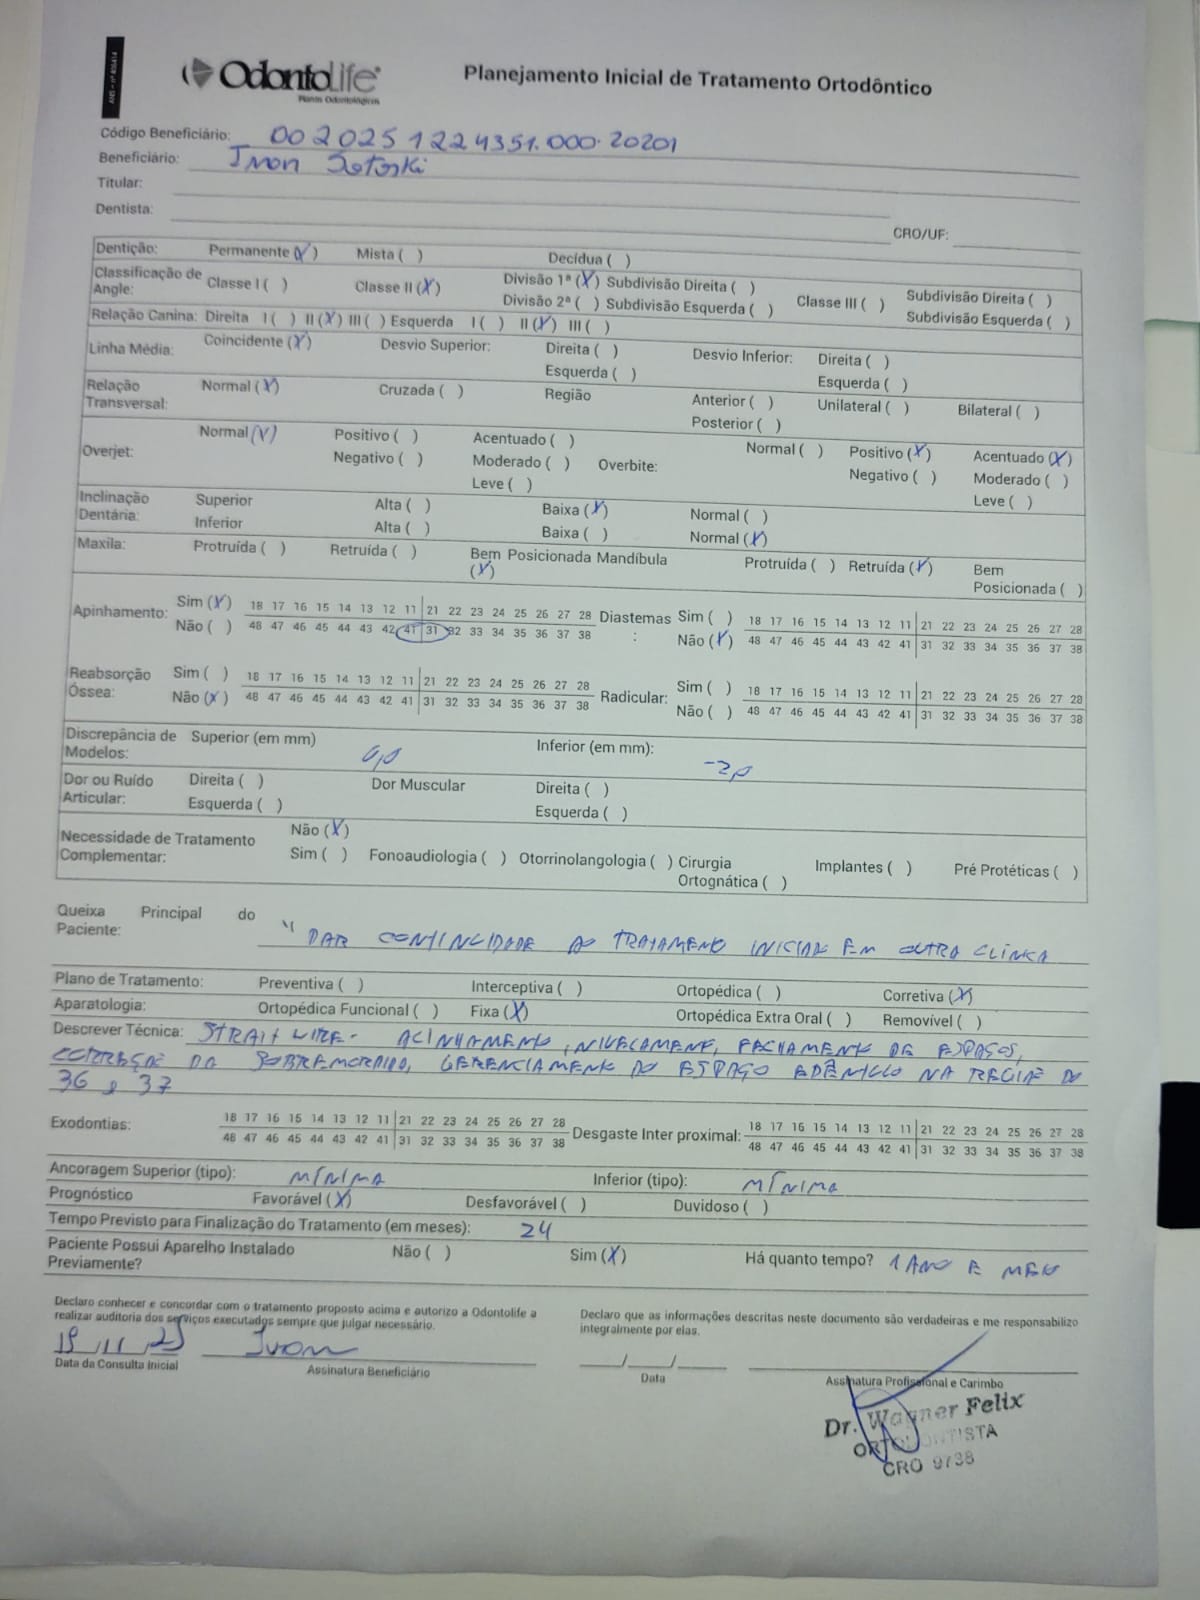 OdontoLife
Planos Odontológicos
Planejamento Inicial de Tratamento Ortodôntico
Código Beneficiário: 002025 1224351.000.20201
Beneficiário: Ivon
Titular:
Dentista:
CRO/UF:
Dentição: Permanente (X) Mista ( ) Decídua ( )
Classificação de Angle: Classe I ( ) Classe II (X) Divisão 1ª (X) Subdivisão Direita ( ) Classe III ( ) Subdivisão Direita ( )
Divisão 2ª ( ) Subdivisão Esquerda ( ) Subdivisão Esquerda ( )
Relação Canina: Direita I ( ) II (X) III ( ) Esquerda I ( ) II (X) III ( )
Linha Média: Coincidente (X) Desvio Superior: Direita ( ) Desvio Inferior: Direita ( )
Esquerda ( ) Esquerda ( )
Relação Transversal: Normal (X) Cruzada ( ) Região Anterior ( ) Unilateral ( ) Bilateral ( )
Posterior ( )
Overjet: Normal (X) Positivo ( ) Acentuado ( ) Overbite: Normal ( ) Positivo (X) Acentuado (X)
Negativo ( ) Moderado ( ) Negativo ( ) Moderado ( )
Leve ( ) Leve ( )
Inclinação Dentária: Superior Alta ( ) Baixa (X) Normal ( )
Inferior Alta ( ) Baixa ( ) Normal (X)
Maxila: Protruída ( ) Retruída ( ) Bem Posicionada (X) Mandíbula Protruída ( ) Retruída (X) Bem Posicionada ( )
Apinhamento: Sim (X) 18 17 16 15 14 13 12 11 21 22 23 24 25 26 27 28 Diastemas : Sim ( ) 18 17 16 15 14 13 12 11 21 22 23 24 25 26 27 28
Não ( ) 48 47 46 45 44 43 42 41 31 32 33 34 35 36 37 38 Não (X) 48 47 46 45 44 43 42 41 31 32 33 34 35 36 37 38
Reabsorção Óssea: Sim ( ) 18 17 16 15 14 13 12 11 21 22 23 24 25 26 27 28 Radicular: Sim ( ) 18 17 16 15 14 13 12 11 21 22 23 24 25 26 27 28
Não (X) 48 47 46 45 44 43 42 41 31 32 33 34 35 36 37 38 Não ( ) 48 47 46 45 44 43 42 41 31 32 33 34 35 36 37 38
Discrepância de Modelos: Superior (em mm) 0,0 Inferior (em mm): -2,0
Dor ou Ruído Articular: Direita ( ) Dor Muscular Direita ( )
Esquerda ( ) Esquerda ( )
Necessidade de Tratamento Complementar: Não (X)
Sim ( ) Fonoaudiologia ( ) Otorrinolangologia ( ) Cirurgia Ortognática ( ) Implantes ( ) Pré Protéticas ( )
Queixa Principal do Paciente: " DAR CONTINCIDADE AO TRATAMENTO INICIAR EM OUTRA CLÍNICA
Plano de Tratamento: Preventiva ( ) Interceptiva ( ) Ortopédica ( ) Corretiva (X)
Aparatologia: Ortopédica Funcional ( ) Fixa (X) Ortopédica Extra Oral ( ) Removível ( )
Descrever Técnica: STRAIT WIRE - ALINHAMENTO, NIVELAMENT, FECHAMENTO DE ESPAÇOS,
CORREÇÃO DA SOBREMORDIDA, GERENCIAMENTO DO ESPAÇO EDÊNTULO NA REGIÃO DO
36 e 37
Exodontias: 18 17 16 15 14 13 12 11 21 22 23 24 25 26 27 28 Desgaste Inter proximal: 18 17 16 15 14 13 12 11 21 22 23 24 25 26 27 28
48 47 46 45 44 43 42 41 31 32 33 34 35 36 37 38 48 47 46 45 44 43 42 41 31 32 33 34 35 36 37 38
Ancoragem Superior (tipo): MÍNIMA Inferior (tipo): MÍNIMA
Prognóstico Favorável (X) Desfavorável ( ) Duvidoso ( )
Tempo Previsto para Finalização do Tratamento (em meses): 24
Paciente Possui Aparelho Instalado Previamente? Não ( ) Sim (X) Há quanto tempo? 1 ANO E MEIO
Declaro conhecer e concordar com o tratamento proposto acima e autorizo a Odontolife a
realizar auditoria dos serviços executados sempre que julgar necessário.
Declaro que as informações descritas neste documento são verdadeiras e me responsabilizo
integralmente por elas.
19/11/25 Ivon
Data da Consulta Inicial Assinatura Beneficiário Data Assinatura Profissional e Carimbo
Dr. Wagner Felix
ORTODONTISTA
CRO 9738